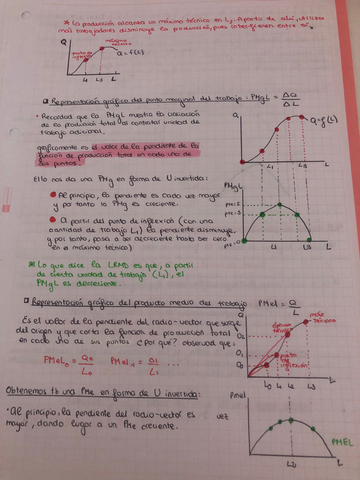 * La producción alcanza un máximo técnico en L₃. A partir de ahí, utilizar
más trabajadores disminuye la producción, pues interfieren entre sí.
Q
máximo técnico
punto de inflexión
Q = f(L)
L₁ L₃ L
Representación gráfica del punto marginal del trabajo: PMgL = ΔQ / ΔL
• Recordad que la PMgL muestra la variación
de la producción total al contratar unidad de
trabajo adicional.
gráficamente es el valor de la pendiente de la
función de producción total en cada uno de
sus puntos.
Q
Q = f(L)
L₁ L₃ L
Ello nos da una PMg en forma de U invertida:
PMgL
• Al principio, la pendiente es cada vez mayor
y por tanto la PMg es creciente.
• A partir del punto de inflexión (con una
cantidad de trabajo L₁) la pendiente disminuye,
y por tanto, pasa a ser decreciente hasta ser cero
en el máximo técnico)
L₁ L₃ L
* Lo que dice la LRMD es que, a partir
de cierta unidad de trabajo (L₁), el
PMgL es decreciente.
Representación gráfica del producto medio del trabajo PMeL = Q / L
Es el valor de la pendiente del radio-vector que surge
del origen y que corta la función de producción total
en cada uno de sus puntos ¿Por qué? observad que:
PMeL₀ = Q₀ / L₀ PMeL₁ = Q₁ / L₁ ...
Q
máx. técnico
óptimo técnico
punto de inflexión
Q₁
Q₀
L₀ L₁ L₂ L₃ L
Obtenemos tb una PMe en forma de U invertida:
PMeL
• Al principio, la pendiente del radio-vector es vez
mayor, dando lugar a un PMe creciente.
PMEL
L₂ L